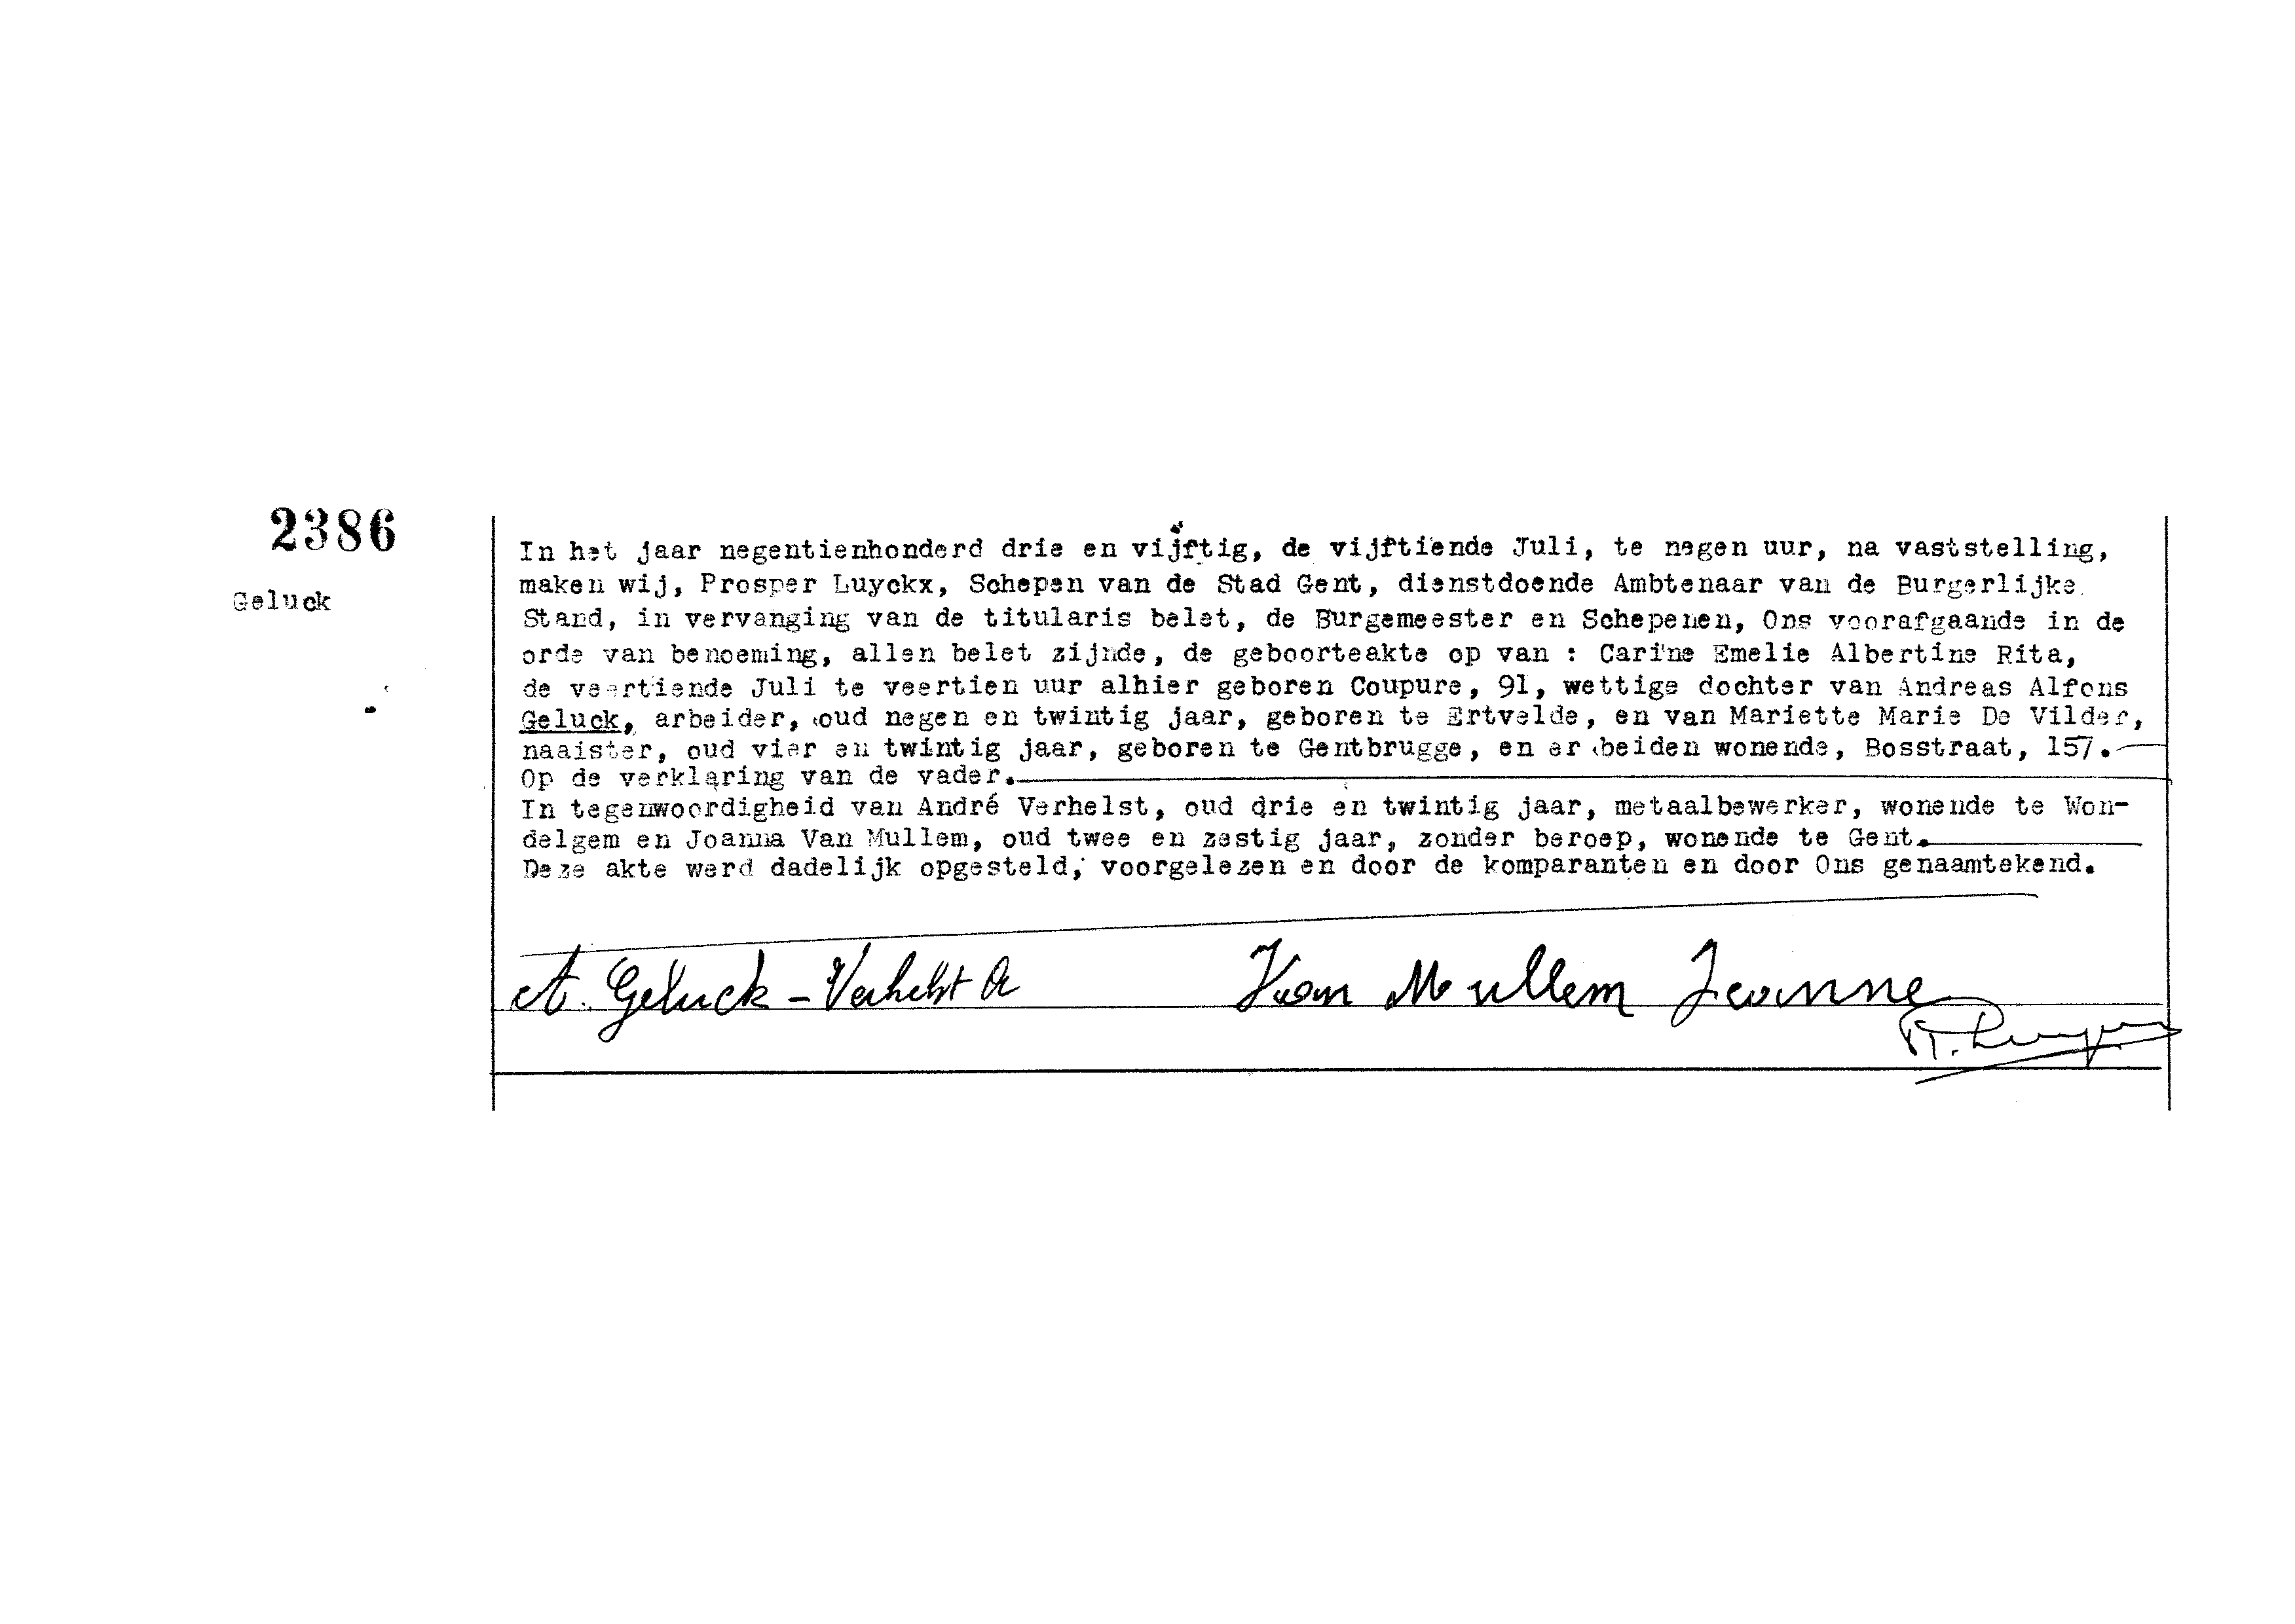 2386
Geluck
In het jaar negentienhonderd drie en vijftig, de vijftiende Juli, te negen uur, na vaststelling,
maken wij, Prosper Luyckx, Schepen van de Stad Gent, dienstdoende Ambtenaar van de Burgerlijke
Stand, in vervanging van de titularis belet, de Burgemeester en Schepenen, Ons voorafgaande in de
orde van benoeming, allen belet zijnde, de geboorteakte op van : Carine Emelie Albertine Rita,
de veertiende Juli te veertien uur alhier geboren Coupure, 91, wettige dochter van Andreas Alfons
Geluck, arbeider, oud negen en twintig jaar, geboren te Ertvelde, en van Mariette Marie De Vilder,
naaister, oud vier en twintig jaar, geboren te Gentbrugge, en er beiden wonende, Bosstraat, 157.
Op de verklaring van de vader.
In tegenwoordigheid van André Verhelst, oud drie en twintig jaar, metaalbewerker, wonende te Won-
delgem en Joanna Van Mullem, oud twee en zestig jaar, zonder beroep, wonende te Gent.
Deze akte werd dadelijk opgesteld, voorgelezen en door de komparanten en door Ons genaamtekend.
A. Geluck - Verhelst A Van Mullem Jeanne